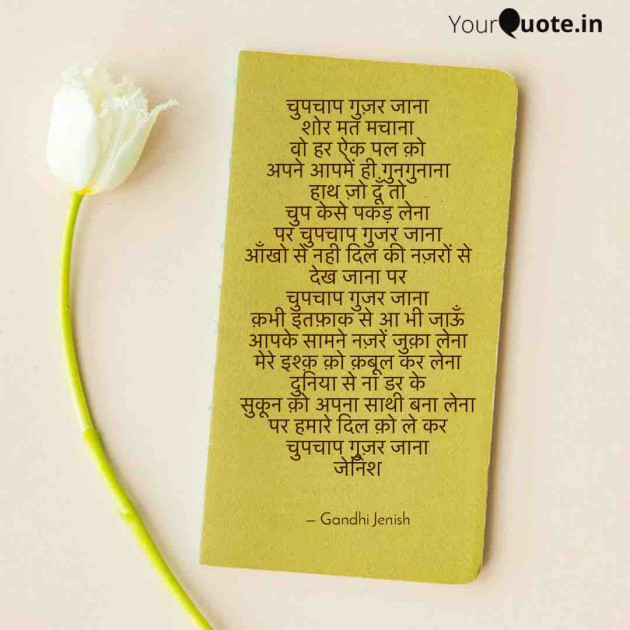 YourQuote.in
चुपचाप गुज़र जाना
शोर मत मचाना
वो हर ऐक पल क़ो
अपने आपमें ही गुनगुनाना
हाथ ज़ो दूँ तो
चुप केसे पकड़ लेना
पर चुपचाप गुजर जाना
आँखो से नही दिल की नज़रों से
देख जाना पर
चुपचाप गुजर जाना
क़भी इतफ़ाक से आ भी जाऊँ
आपके सामने नज़रें जुक़ा लेना
मेरे इश्क़ क़ो क़बूल कर लेना
दुनिया से ना डर के
सुकून क़ो अपना साथी बना लेना
पर हमारे दिल क़ो ले कर
चुपचाप गुज़र जाना
जेनिश
— Gandhi Jenish